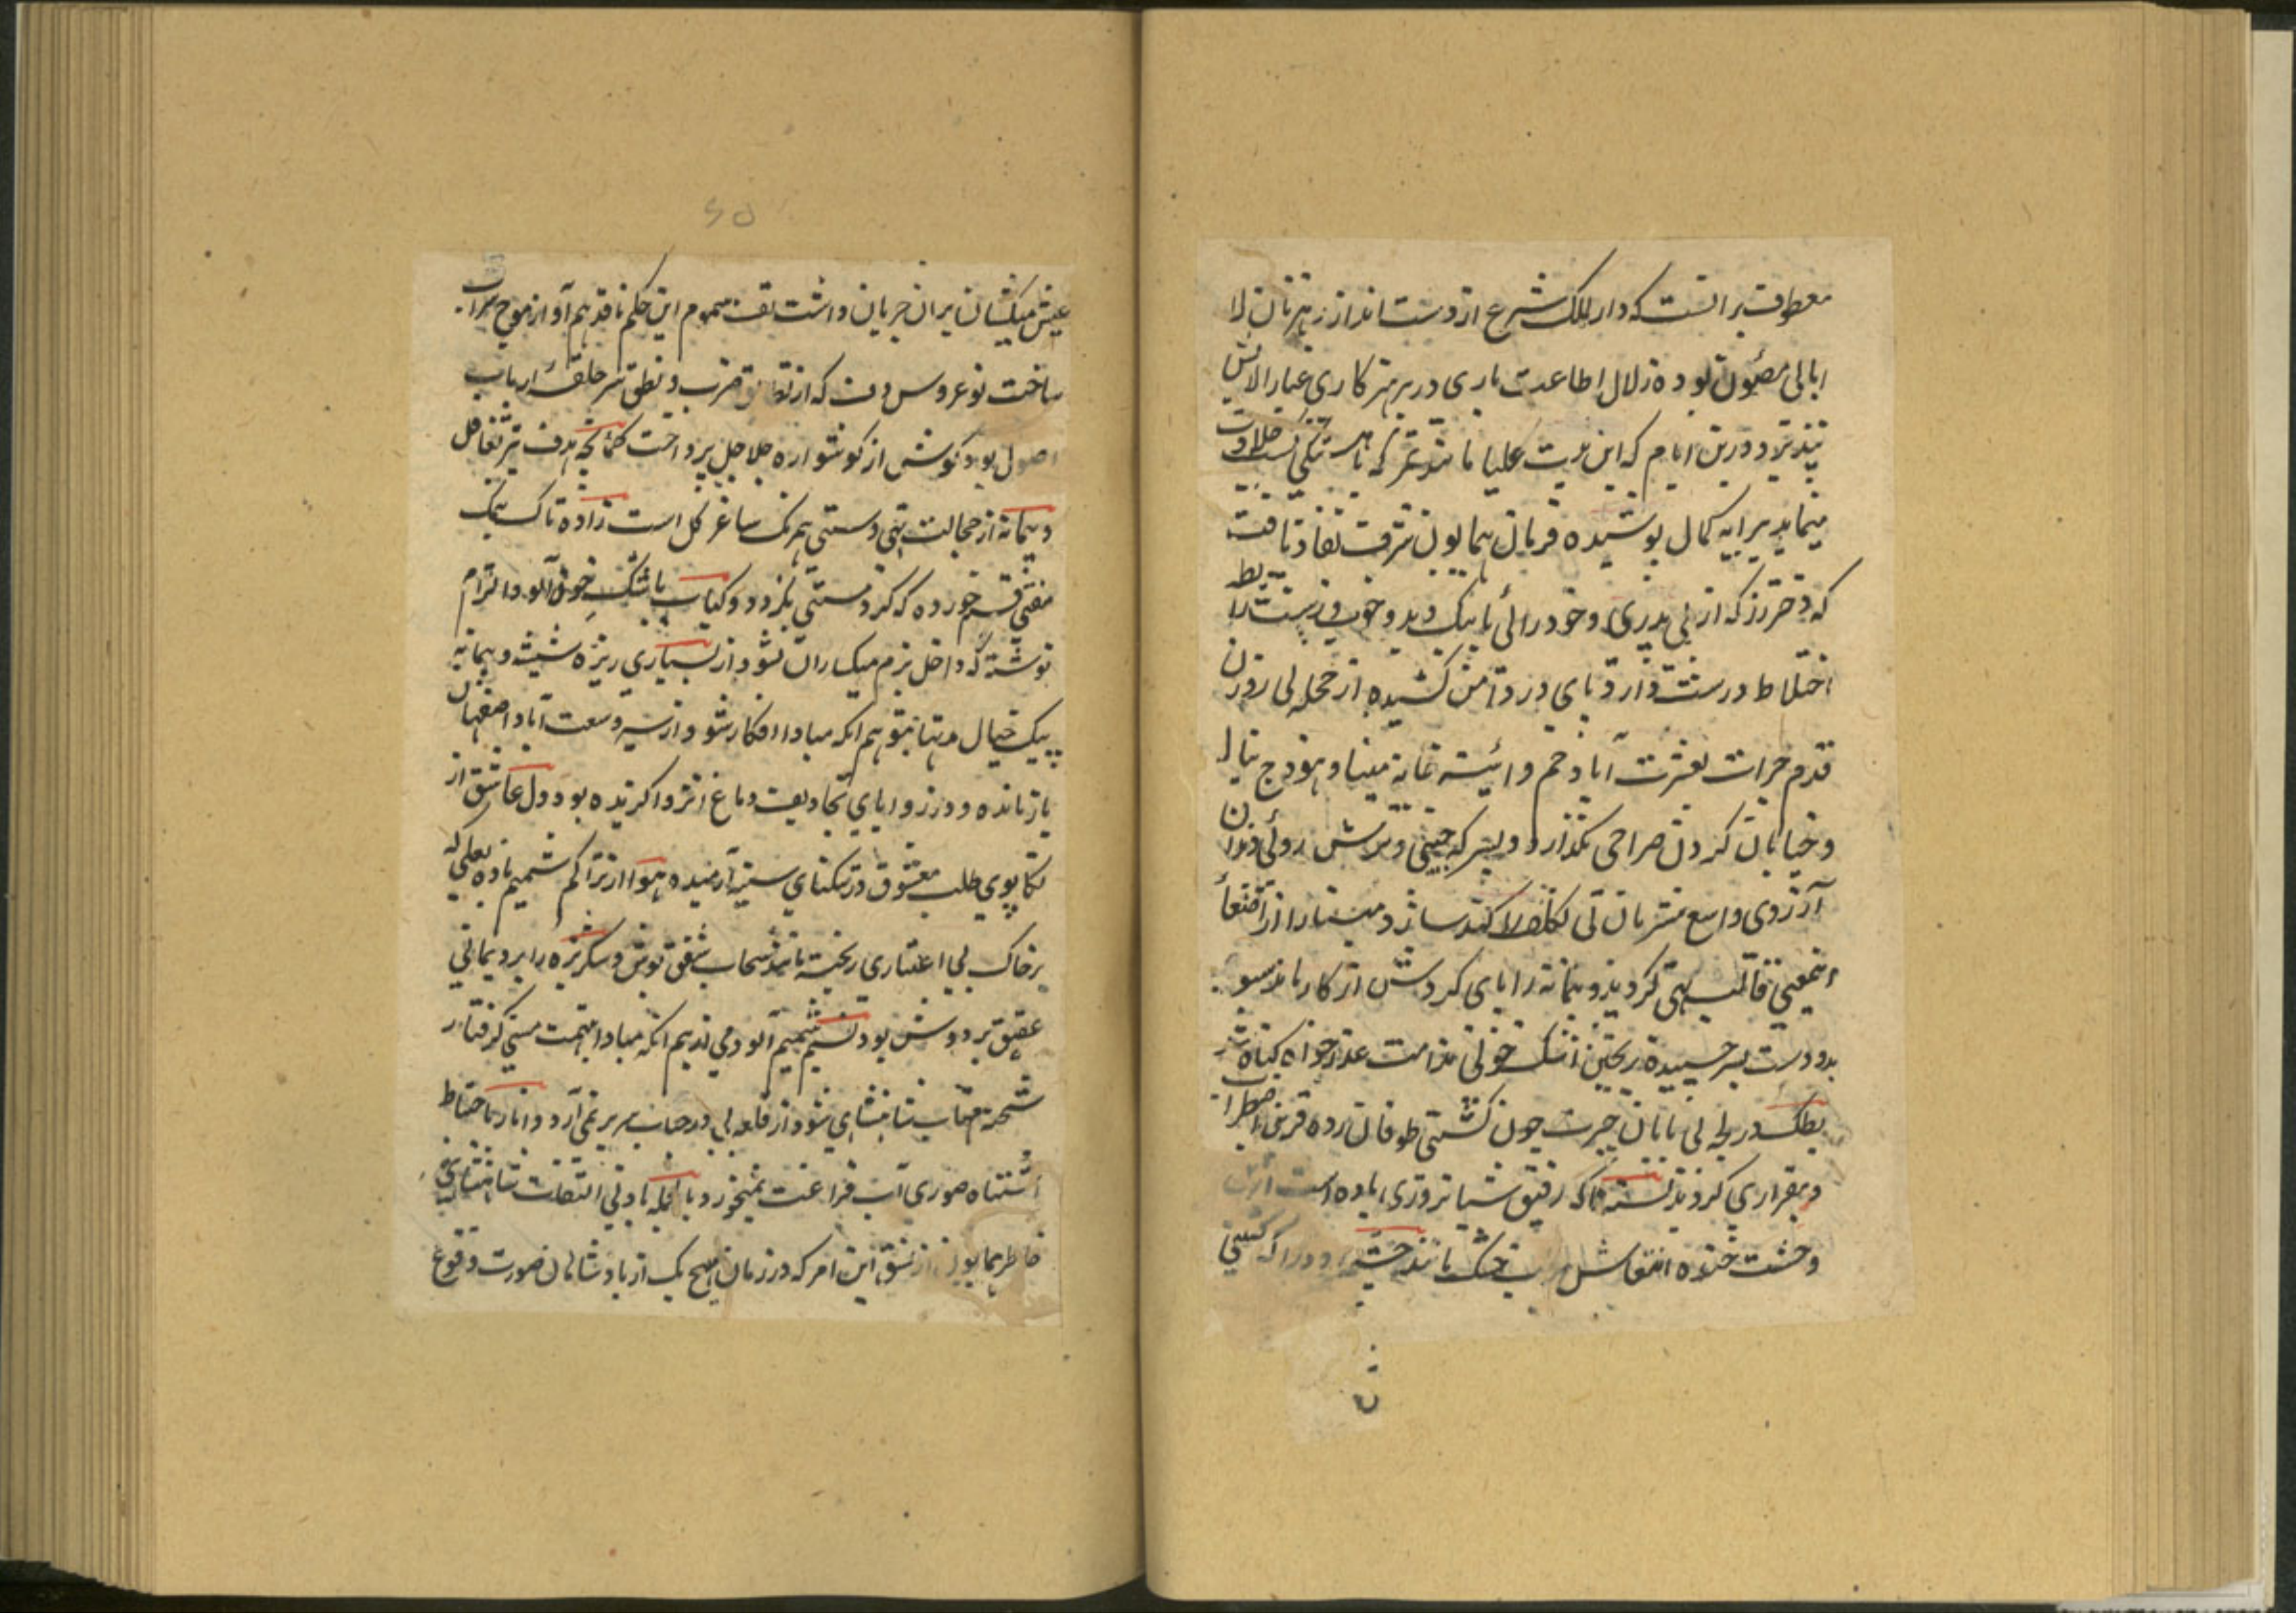 معطوف بر آنست که دار الملک شرع از دست انداز رهزنان لا
ابالی مصون بوده زلال اطاعت باری در پرهیزکاری غبار الایش
نپذیرد درین ایام که این نیت علیا مانند ثمر که باهستگی کسب حلاوت
مینماید پیرایه کمال پوشیده فرمان همایون شرف نفاذ یافت
که دختر رز که از بی پدری وخودرائی با نیک وبد وخوب وزشت رابطه
اختلاط درست دارد پای در دامن کشیده از حجله بی روزن
قدم جرات بعشرت آباد خم وائینه خانه مینا وهودج پیاله
وخیابان گردن صراحی نگذارد و بسرکه جبینی وترش روئی دندان
آرزوی واسع مشربان کند سازد مینا را از استماع
اینمعنی قالب تهی گردید و پیمانه را پای گردش از کار باز
بدو دست بسر چسبیده ریختن اشک خونی ندامت عذرخواه گناه
بطک در لجه بی پایان حیرت چون کشتی طوفان زده قرین اضطراب
وبیقراری گردید تاک رفیق شبانروزی باده است
وحشت خنده انتعاش خشک مانند را که کشتی
عیش میکشان بران جریان داشت تف سموم این حکم نافذ هم آواز موج سراب
ساخت نوعروس دف که از ضرب ونطق سر حلقه ارباب
اصول بود گوش از گوشواره جلاجل پرداخت کمانچه هدف تیر تغافل
وپیمانه از خجالت تهی دستی همرنگ ساغر گل است زاده تاک
قسم خورده که گرد مستی نگردد وکباب باشک خون آلود التزام
نوشته که داخل بزم میکساران نشود از بسیاری ریزه شیشه وپیمانه
پیک خیال مهتاب بتوهم انکه مبادا افکار شود از سیر وسعت آباد اصفهان
باز مانده و در زوایای تجاویف دماغ انزوا گزیده بود ودل عاشق از
تکاپوی طلب معشوق در تنگنای سینه آرمیده هوا از تراکم شمیم باده لعلی که
بر خاک بی اعتباری ریخته مانند سحاب شفق پوش وسنگریزه را برد یمانی
عقیق بر دوش بود نسیم شمیم آلود می ندیم انکه مبادا بتهمت مستی گرفتار
شحنه شود از قلعه بی در حباب سر بر نمی آرد وانار باحتیاط
اشتباه صوری آب فراغت نمیخورد بالجمله بادنی التفات شاهنشاهی
خاطر همایون از نسق این امر که در زمان هیچ یک از پادشاهان صورت وقوع